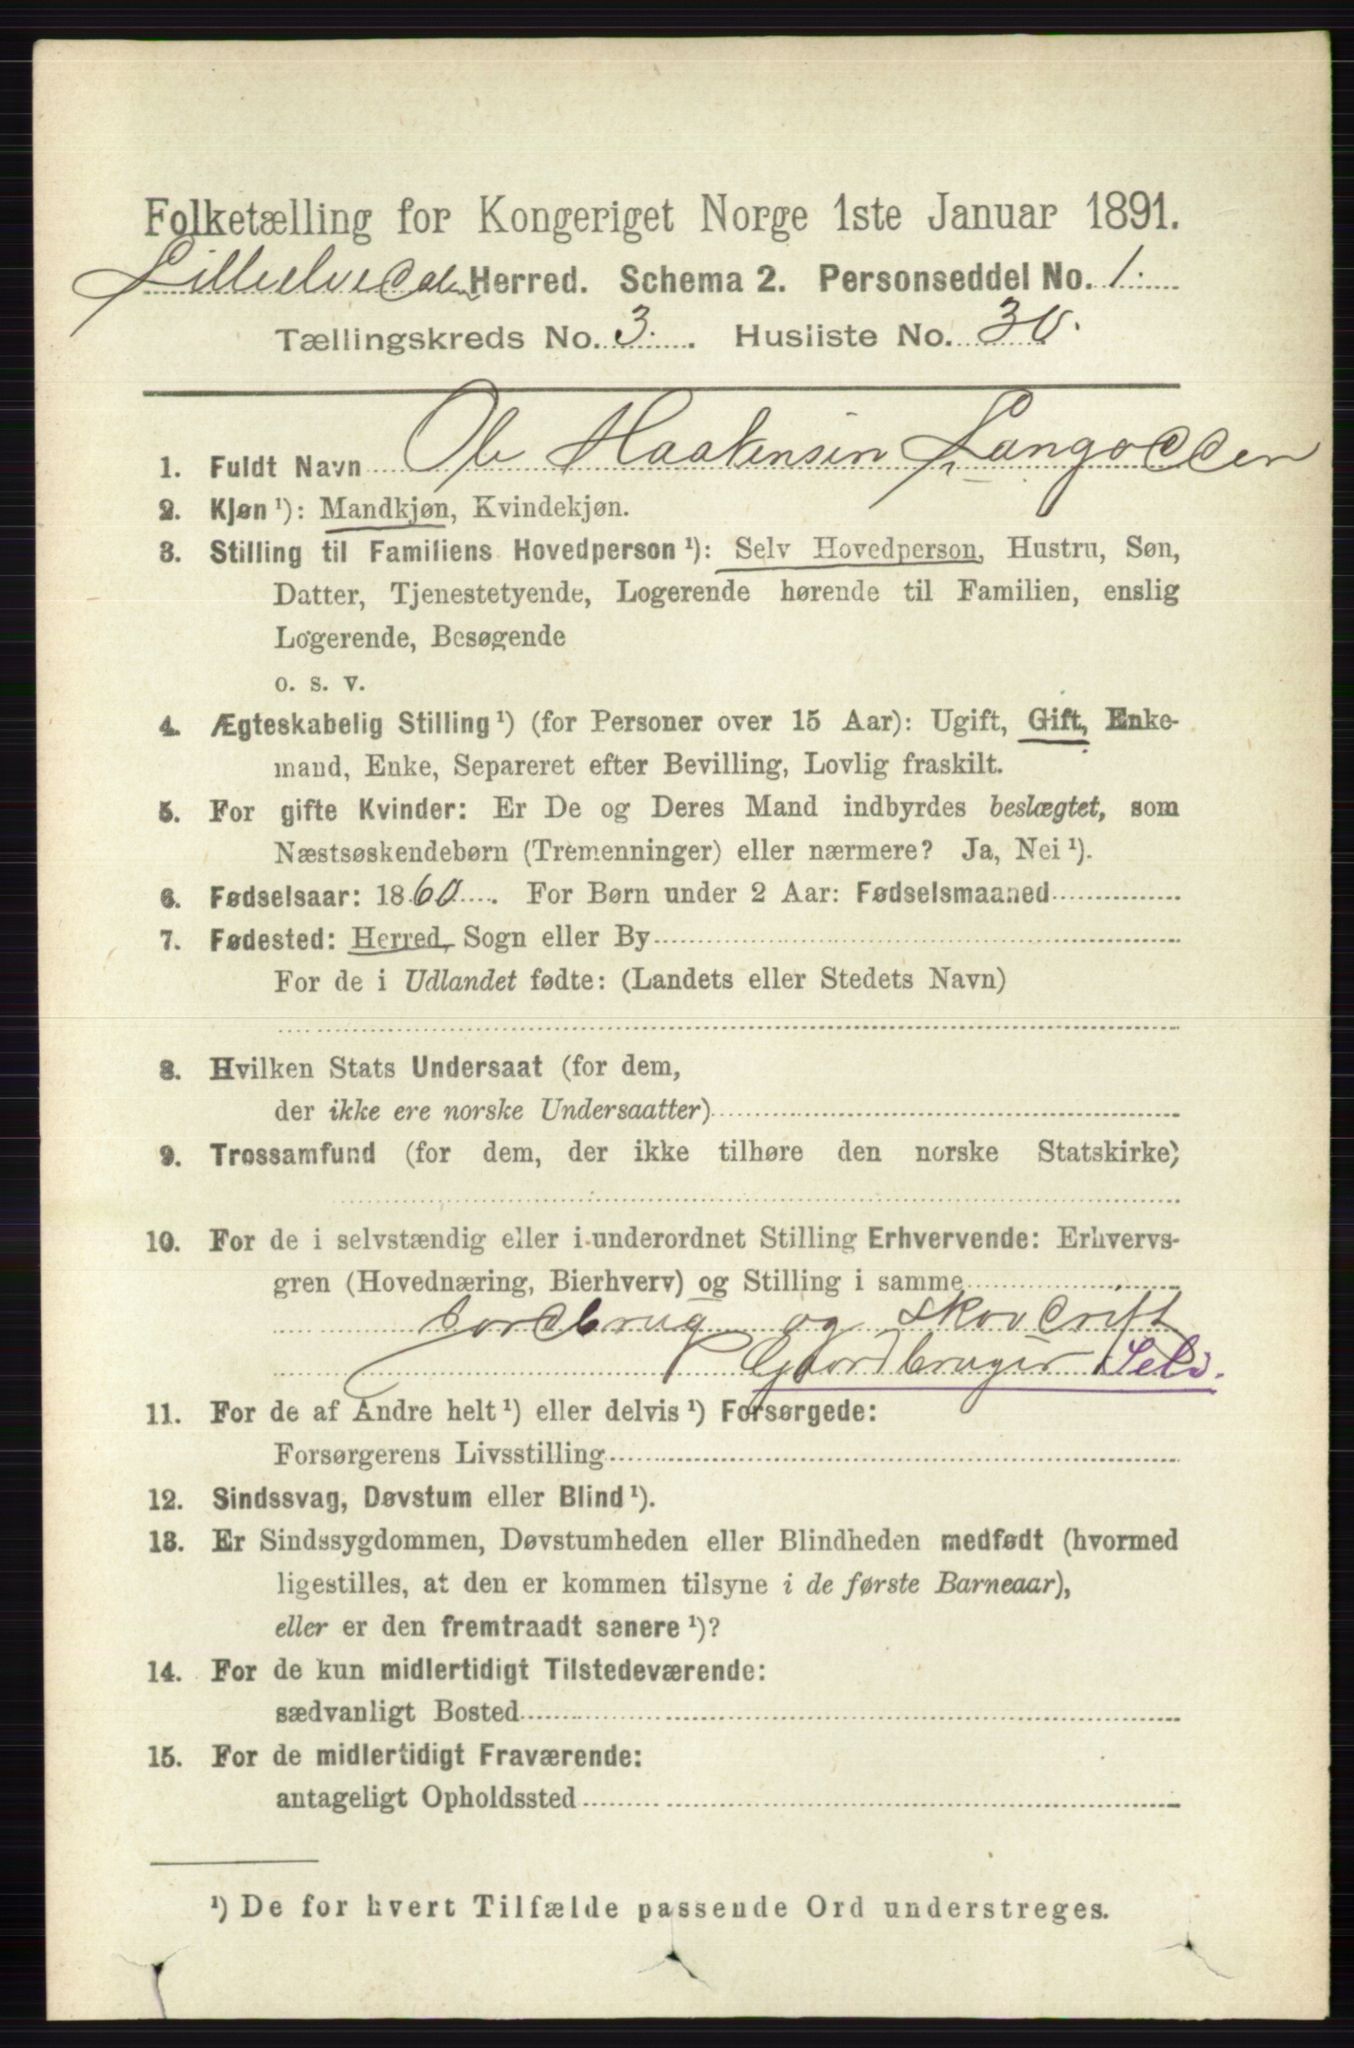 Folketælling for Kongeriget Norge 1ste Januar 1891.
Lilleelvedalen Herred. Schema 2. Personseddel No. 1.
Tællingskreds No. 3. Husliste No. 30.
1. Fuldt Navn Ole Haakensen Langodden
2. Kjøn ¹): Mandkjøn, Kvindekjøn.
3. Stilling til Familiens Hovedperson ¹): Selv Hovedperson, Hustru, Søn,
Datter, Tjenestetyende, Logerende hørende til Familien, enslig
Logerende, Besøgende
o. s. v.
4. Ægteskabelig Stilling ¹) (for Personer over 15 Aar): Ugift, Gift, Enke-
mand, Enke, Separeret efter Bevilling, Lovlig fraskilt.
5. For gifte Kvinder: Er De og Deres Mand indbyrdes beslægtet, som
Næstsøskendebørn (Tremenninger) eller nærmere? Ja, Nei ¹).
6. Fødselsaar: 1860. For Børn under 2 Aar: Fødselsmaaned
7. Fødested: Herred, Sogn eller By
For de i Udlandet fødte: (Landets eller Stedets Navn)
8. Hvilken Stats Undersaat (for dem,
der ikke ere norske Undersaatter)
9. Trossamfund (for dem, der ikke tilhøre den norske Statskirke)
10. For de i selvstændig eller i underordnet Stilling Erhvervende: Erhvervs-
gren (Hovednæring, Bierhverv) og Stilling i samme
Jordbrug og Skovdrift
Gaardbruger Selv.
11. For de af Andre helt ¹) eller delvis ¹) Forsørgede:
Forsørgerens Livsstilling
12. Sindssvag, Døvstum eller Blind ¹).
13. Er Sindssygdommen, Døvstumheden eller Blindheden medfødt (hvormed
ligestilles, at den er kommen tilsyne i de første Barneaar),
eller er den fremtraadt senere ¹)?
14. For de kun midlertidigt Tilstedeværende:
sædvanligt Bosted
15. For de midlertidigt Fraværende:
antageligt Opholdssted
¹) De for hvert Tilfælde passende Ord understreges.